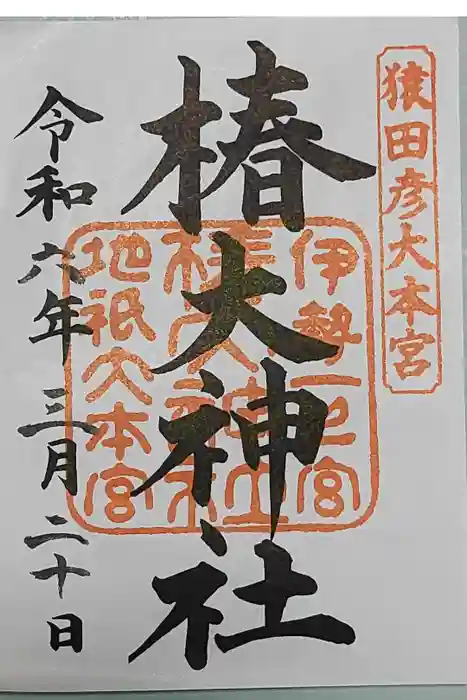 猿田彦大本宮
椿大神社
伊勢一宮
椿大神社
地祇大本宮
令和六年三月二十日